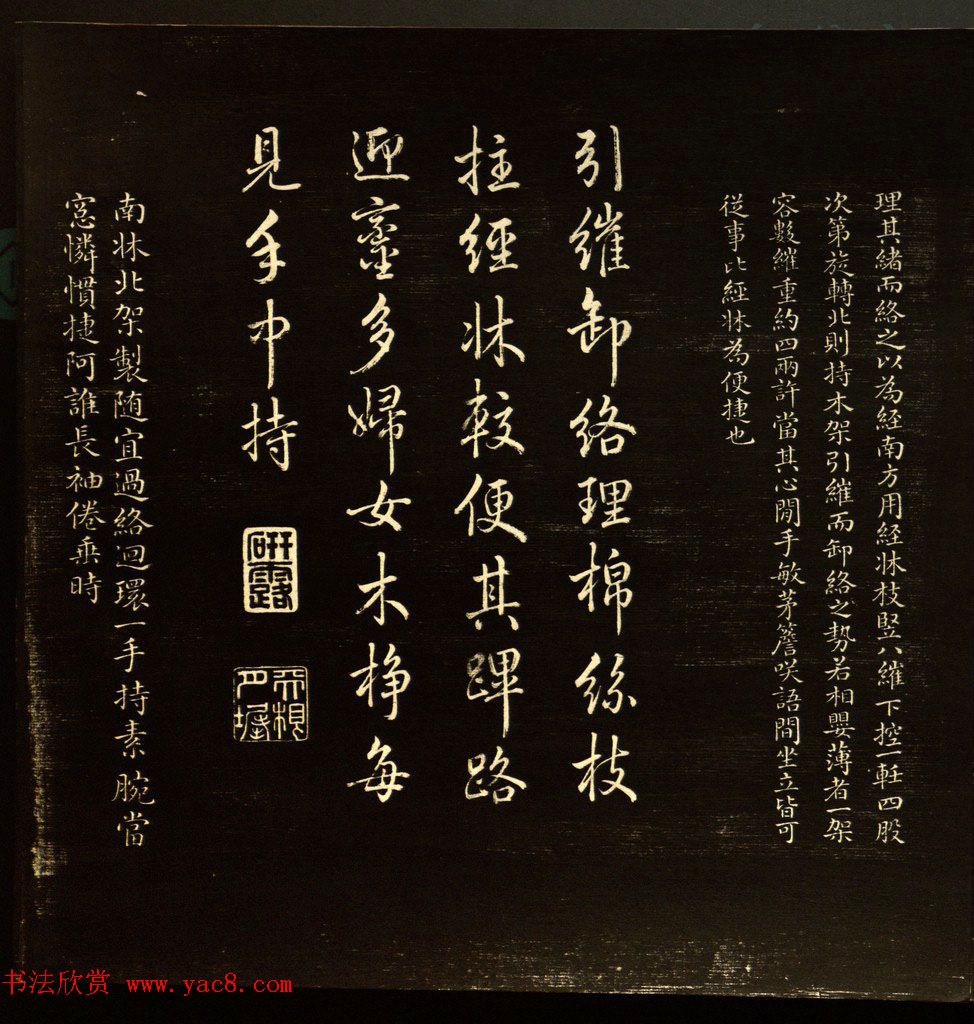 理其緒而絡之以為經南方用經牀枝竪八繀下控一軠四股
次第旋轉北則持木架引繀而卸絡之勢若相嬰薄者一架
容數繀重約四兩許當其心閒手敏茅簷咲語間坐立皆可
從事比經牀為便捷也
引繀卸絡理棉絲枝
拄經牀較便其蹕路
迎鑾多婦女木掙每
見手中持
研露
南牀北架製随宜過絡迴環一手持素腕當
窓憐慣捷阿誰長袖倦垂時
书法欣赏 www.yac8.com